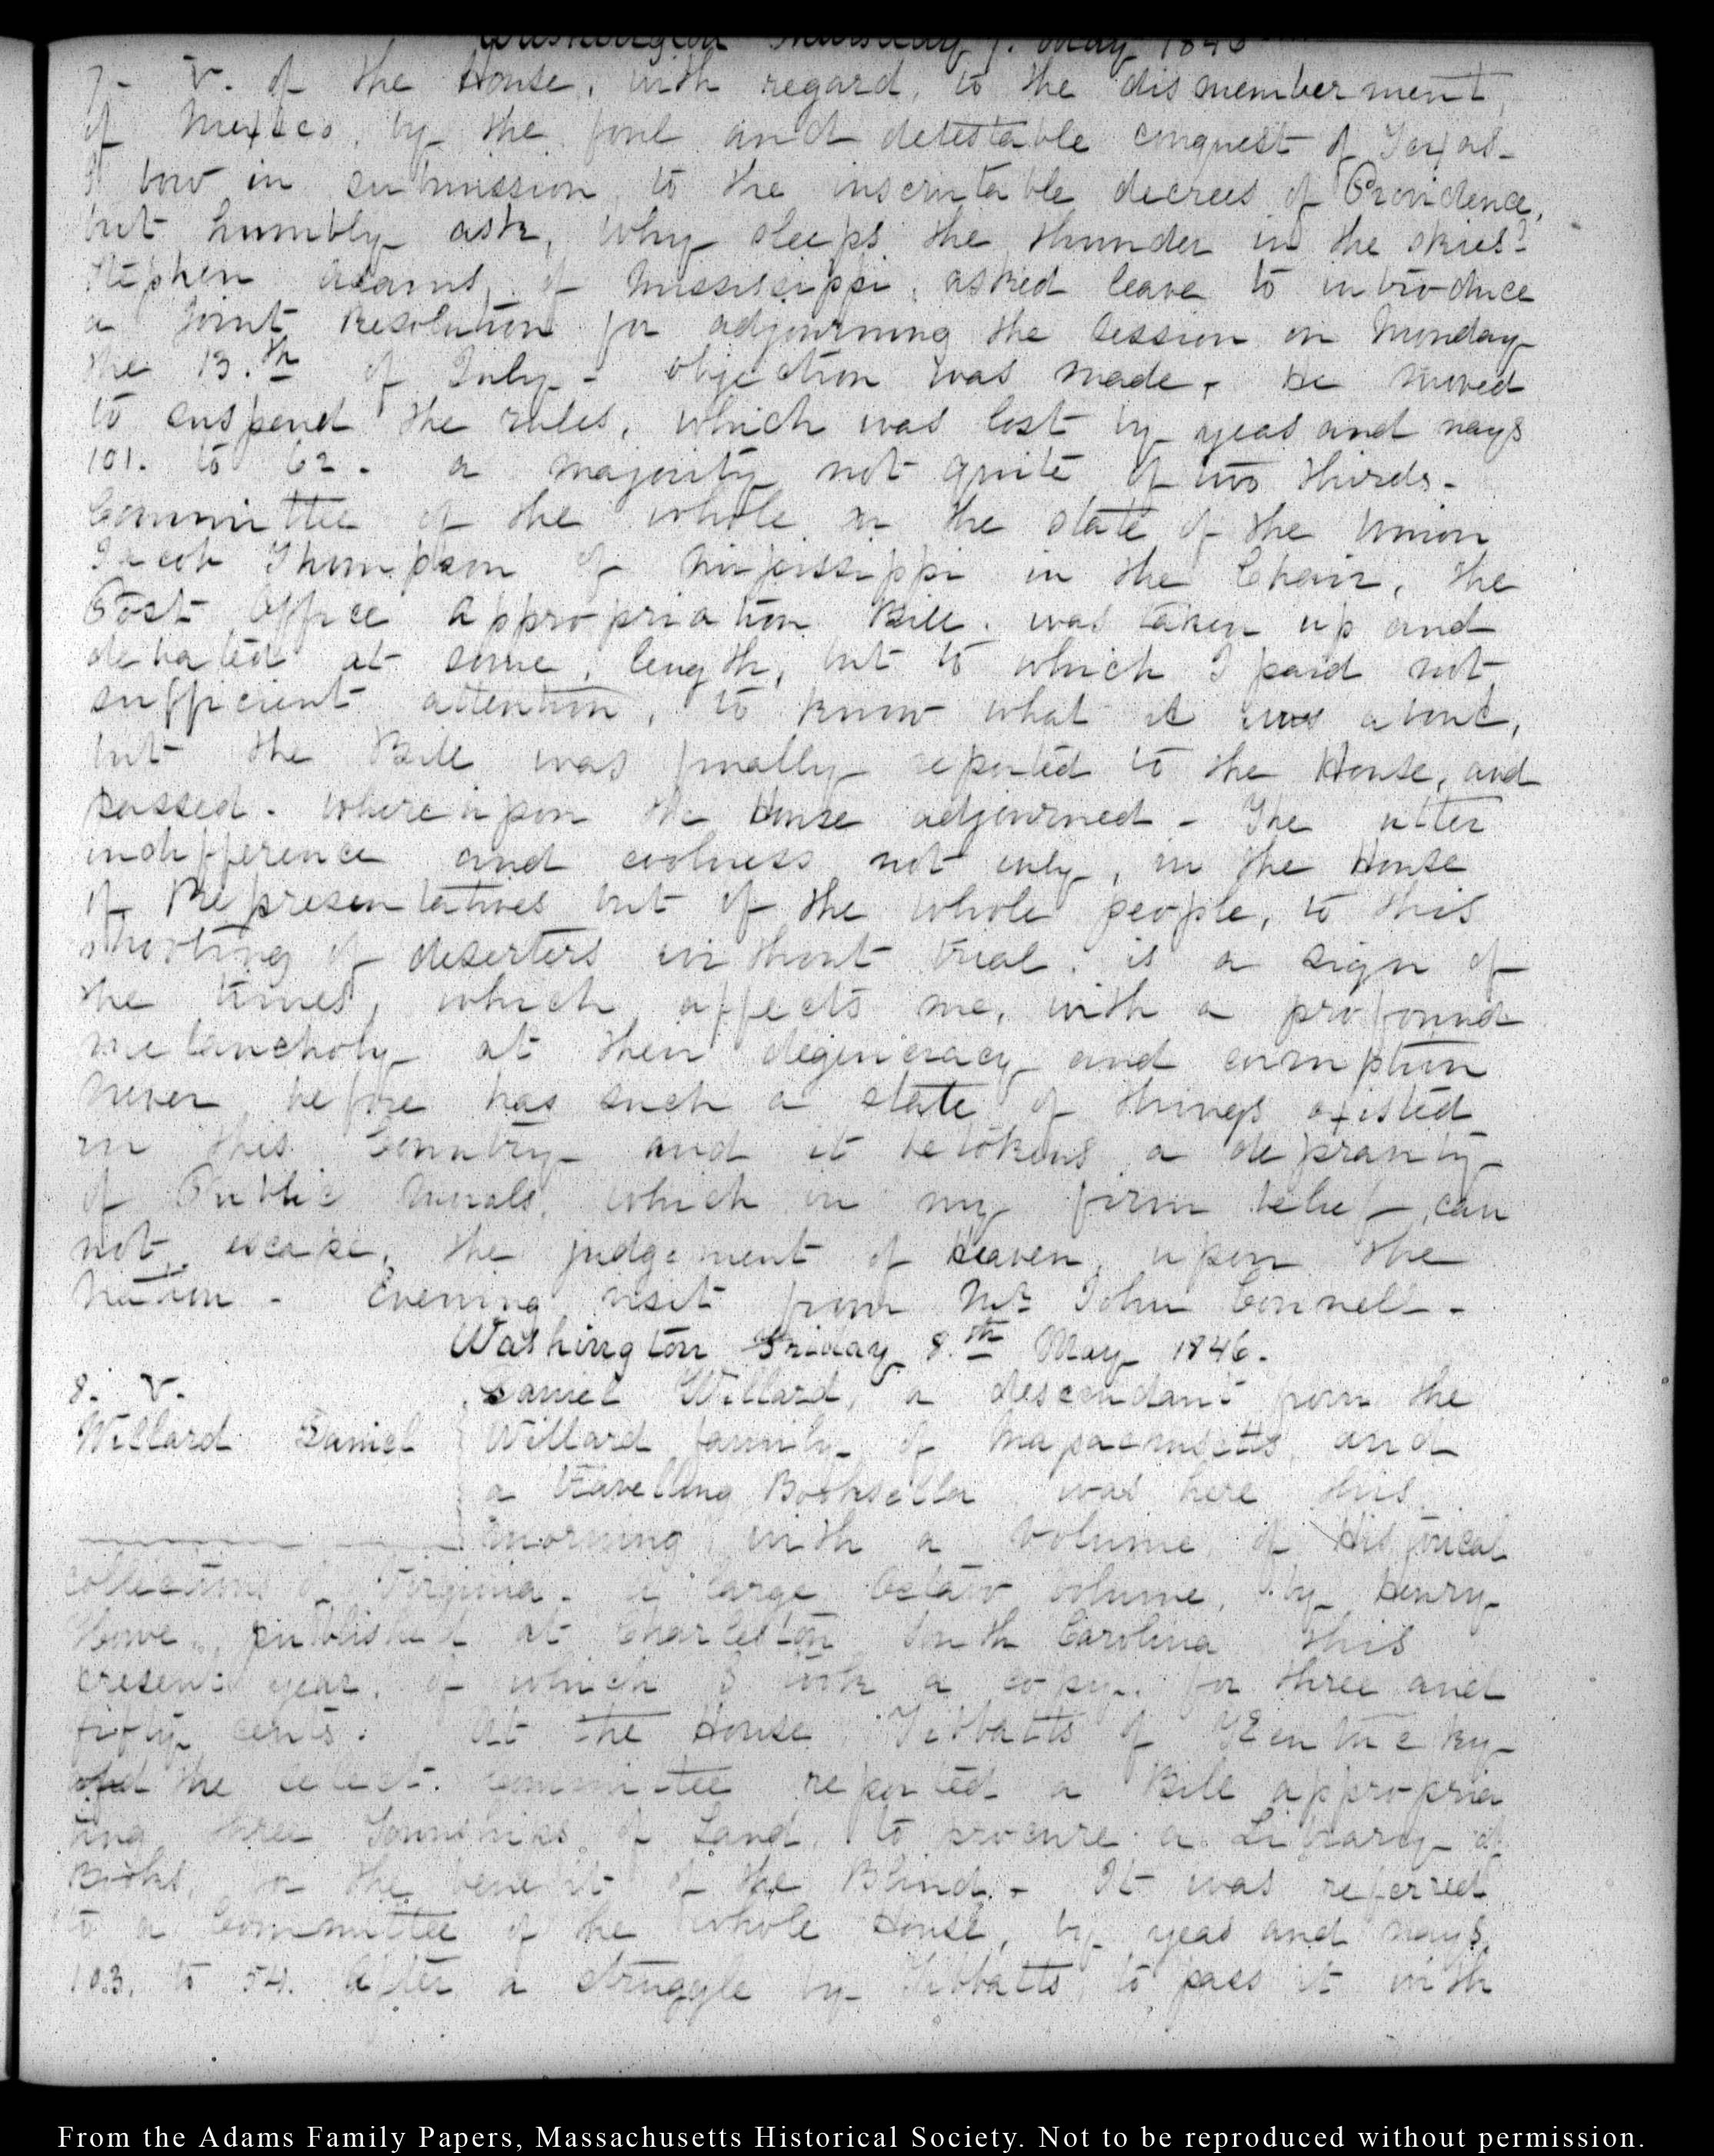 Washington Thursday 7. May 1846
7. V. of the House, with regard, to the dismemberment,
of Mexico, by the foul and detestable conquest of Texas—
I bow in submission to the inscrutable decrees of Providence,
but humbly ask, why sleeps the thunder in the skies?
Stephen Adams, of Mississippi, asked leave to introduce
a Joint Resolution for adjourning the Session on Monday
the 13.th of July— objection was made, He moved
to suspend the rules, which was lost by yeas and nays
101. to 62. a majority not quite of two thirds—
Committee of the whole on the state of the Union
Jacob Thompson of Mississippi in the Chair, the
Post Office Appropriation Bill. was taken up and
debated at some, length, but to which I paid not
sufficient attention, to know what it was about,
but the Bill was finally reported to the House, and
passed. whereupon the House adjourned— The utter
indifference and coolness not only, in the House
of Representatives but of the whole people, to this
shooting of deserters without trial. is a sign of
the times, which affects me, with a profound
melancholy at their degeneracy and corruption
never before has such a state of things existed
in this Country and it betokens a depravity
of Public Morals, which in my firm belief can
not escape, the judgement of Heaven, upon the
Nation— Evening visit from Mr John Connell—
Washington Friday 8.th May 1846.
8. V. Daniel Willard, a descendant from the
Willard Daniel Willard family of Massachusetts and
a travelling Bookseller was here this
morning with a volume of Historical
collections of Virginia. a large Octavo volume, by Henry
Howe, published at Charleston South Carolina this
present year, of which I took a copy. for three and
fifty cents. At the House Tibbatts of Kentucky
the select. Committee reported a Bill appropria
ting three Townships of Land, to procure a Library of
Books, for the benefit of the Blind.— It was referred
to a Committee of the whole House, by yeas and nays,
103. to 54. After a struggle by Tibbatts, to pass it with
From the Adams Family Papers, Massachusetts Historical Society. Not to be reproduced without permission.